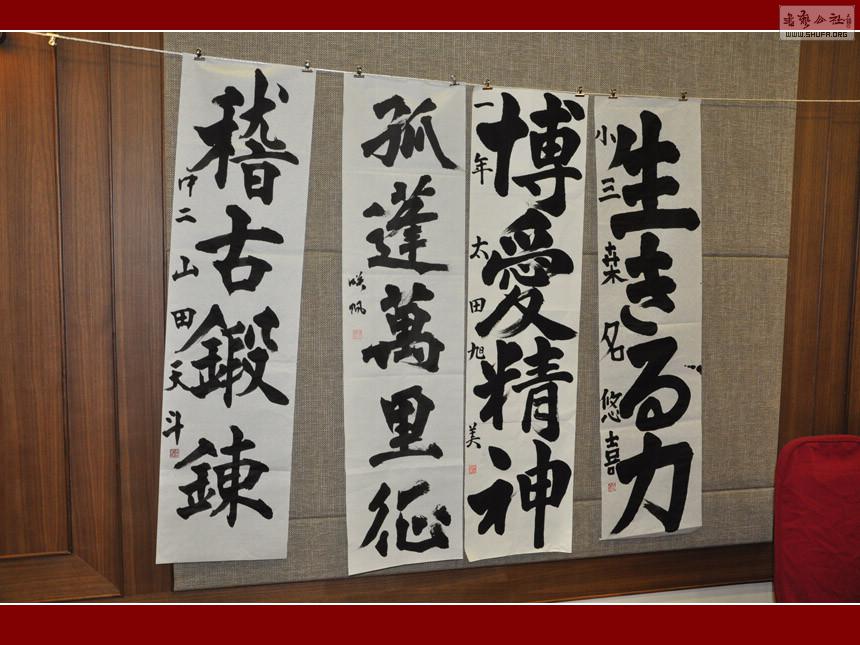 生きる力
小三 桒名悠喜
博愛精神
一年 太田旭美
孤蓬萬里征
稽古鍛錬
中二 山田天斗
WWW.SHUFA.ORG